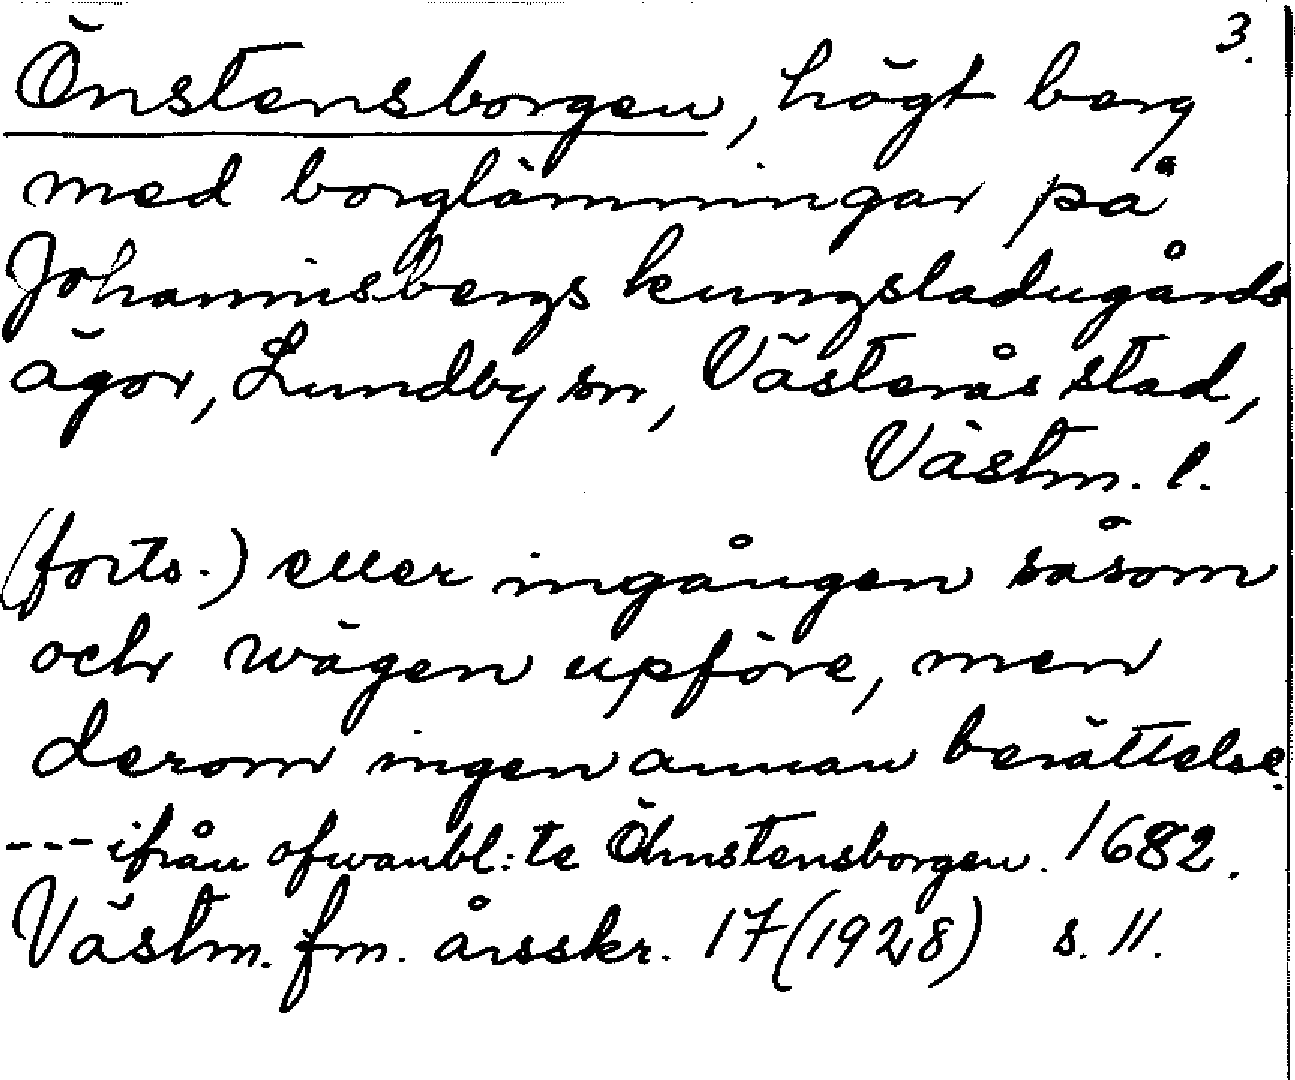 3.
Önstensborgen, högt berg
med borglämningar på
Johannisbergs kungsladugårds
ägor, Lundby sn, Västerås stad,
Västm. l.
(forts.) eller ingången såsom
och wägen upföre, men
derom ingen annan berättelse
--- ifrån ofwanbl:te Öhnstensborgen. 1682.
Västm. fm. årsskr. 17 (1928) s. 11.